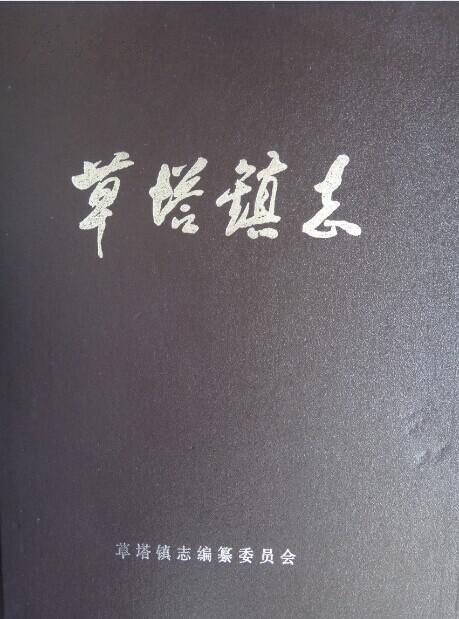 草塔鎮志
草塔镇志编纂委员会